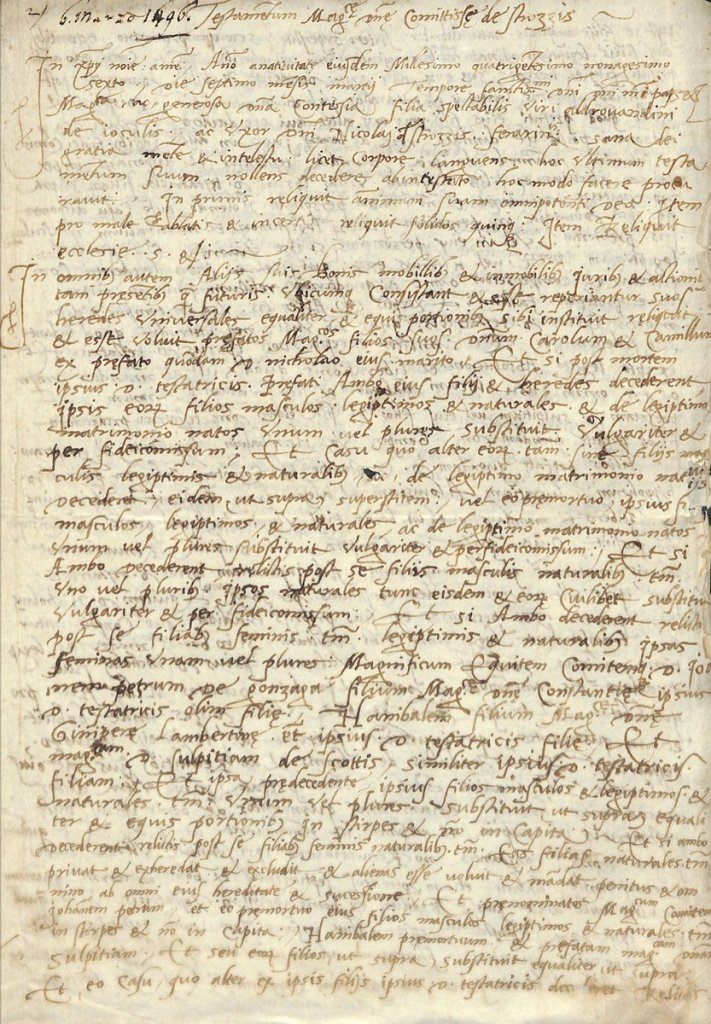 2/ 6. Marzo 1496. Testamentum Mag.ce D.ne Comitisse de Strozzis
In xpy noie: ame, Ano anativitate eiusdem Millesimo quatrigentesimo nonagesimo
sexto, die septimo mensis martij Tempore sanctis.mi dni
Mag.ca ac generosa dna Contessia filia spectabilis Viri aldrovandini
de ioculis. ac Uxor Dni Nicolaj Strozzis ferarin: sana dei
gratia mente & intelectu, licet Corpore languens, hoc Ultimum testa
mentum suum nollens decedere abintestato hoc modo facere procu
ravit. In primis reliquit animam suam omnipotenti Deo. Item
pro male ablatis & incertis reliquit solidos quinq; Item Reliquit
ecclesie. s. &
In omnibus autem Alijs suis Bonis mobillibus & inmobilibus juribus & actionib
tam presetibus q futuris Ubicunq Consistant & reperiantur suos
heredes Universales equaliter & equis portionibus sibi instituit reliquit
& esse voluit prefatos Mag.cos filios suos dnum Carolum & Camillum
ex prefato quodam D nicholao eius marito. Et si post mortem
ipsius D. testatricis. Prefati Ambo eius filij & heredes decederent
ipsis eorum filios masculos legiptimos & naturales & de legiptimo
matrimonio natos Unum vel plures substituit Vulgariter &
per fideicomissum, Et Casu quo alter eorum tam sine filijs mas
culis legiptimis & naturalibus, ac de legiptimo matrimonio natis
decederet, eidem, ut supra, superstitem, vel eo premortuo, ipsius fi
masculos, legiptimos, & naturales, ac de legiptimo matrimonio natos
Unum vel plures substituit Vulgariter & perfideicomissum: Et si
Ambo decederent relictis post se filijs masculis naturalibus tm
Uno vel pluribus ipsos naturales tunc eisdem & eorum Cuilibet substitui
Vulgariter & per fideicomissum: Et si Ambo decederent relicti
post se filiabus feminis tm legeptimis & naturalibus ipsas
feminas Unam vel plures: Magnificum Equitem Comitem D Jo
nem petrum de gonzaga filium Mag.ce dne Constantie ipsius
D. testatricis olim filie. Hanibalem filium Mag.ce dne
Ginipere Lambertine et ipsius D. testatricis filie: Et
mag.cam D. sulpitiam de scottis similiter ipsius D. testatricis.
filiam: Et ipsa predecedente ipsius filios masculos & legiptimos &
naturales tm Unum vel plures substituit ut supra, equali
ter & equis portionibus In stirpes & no in Capita. Et si ambo
decederent relictis post se filiabus feminis naturalibus tm. Eas filias naturales tm
privat & exheredat & excludit & alienas esse voluit & mandat penitus & om
nino ab omni eius hereditate & sucessione: Et prenominatos Mag.cum Comitem
Johanem petrum et eo premortuo eius filios masculos legiptimos & naturales tm
in stirpes & no in Capita: Hanibalem premortuum & prefatam mag.cam dnam
Sulpitiam. Et seu eorum filios ut supra substituit equaliter ut supra
Et eo Casu, quo alter ex ipsis filijs ipsius D. testatricis decederet Relictis